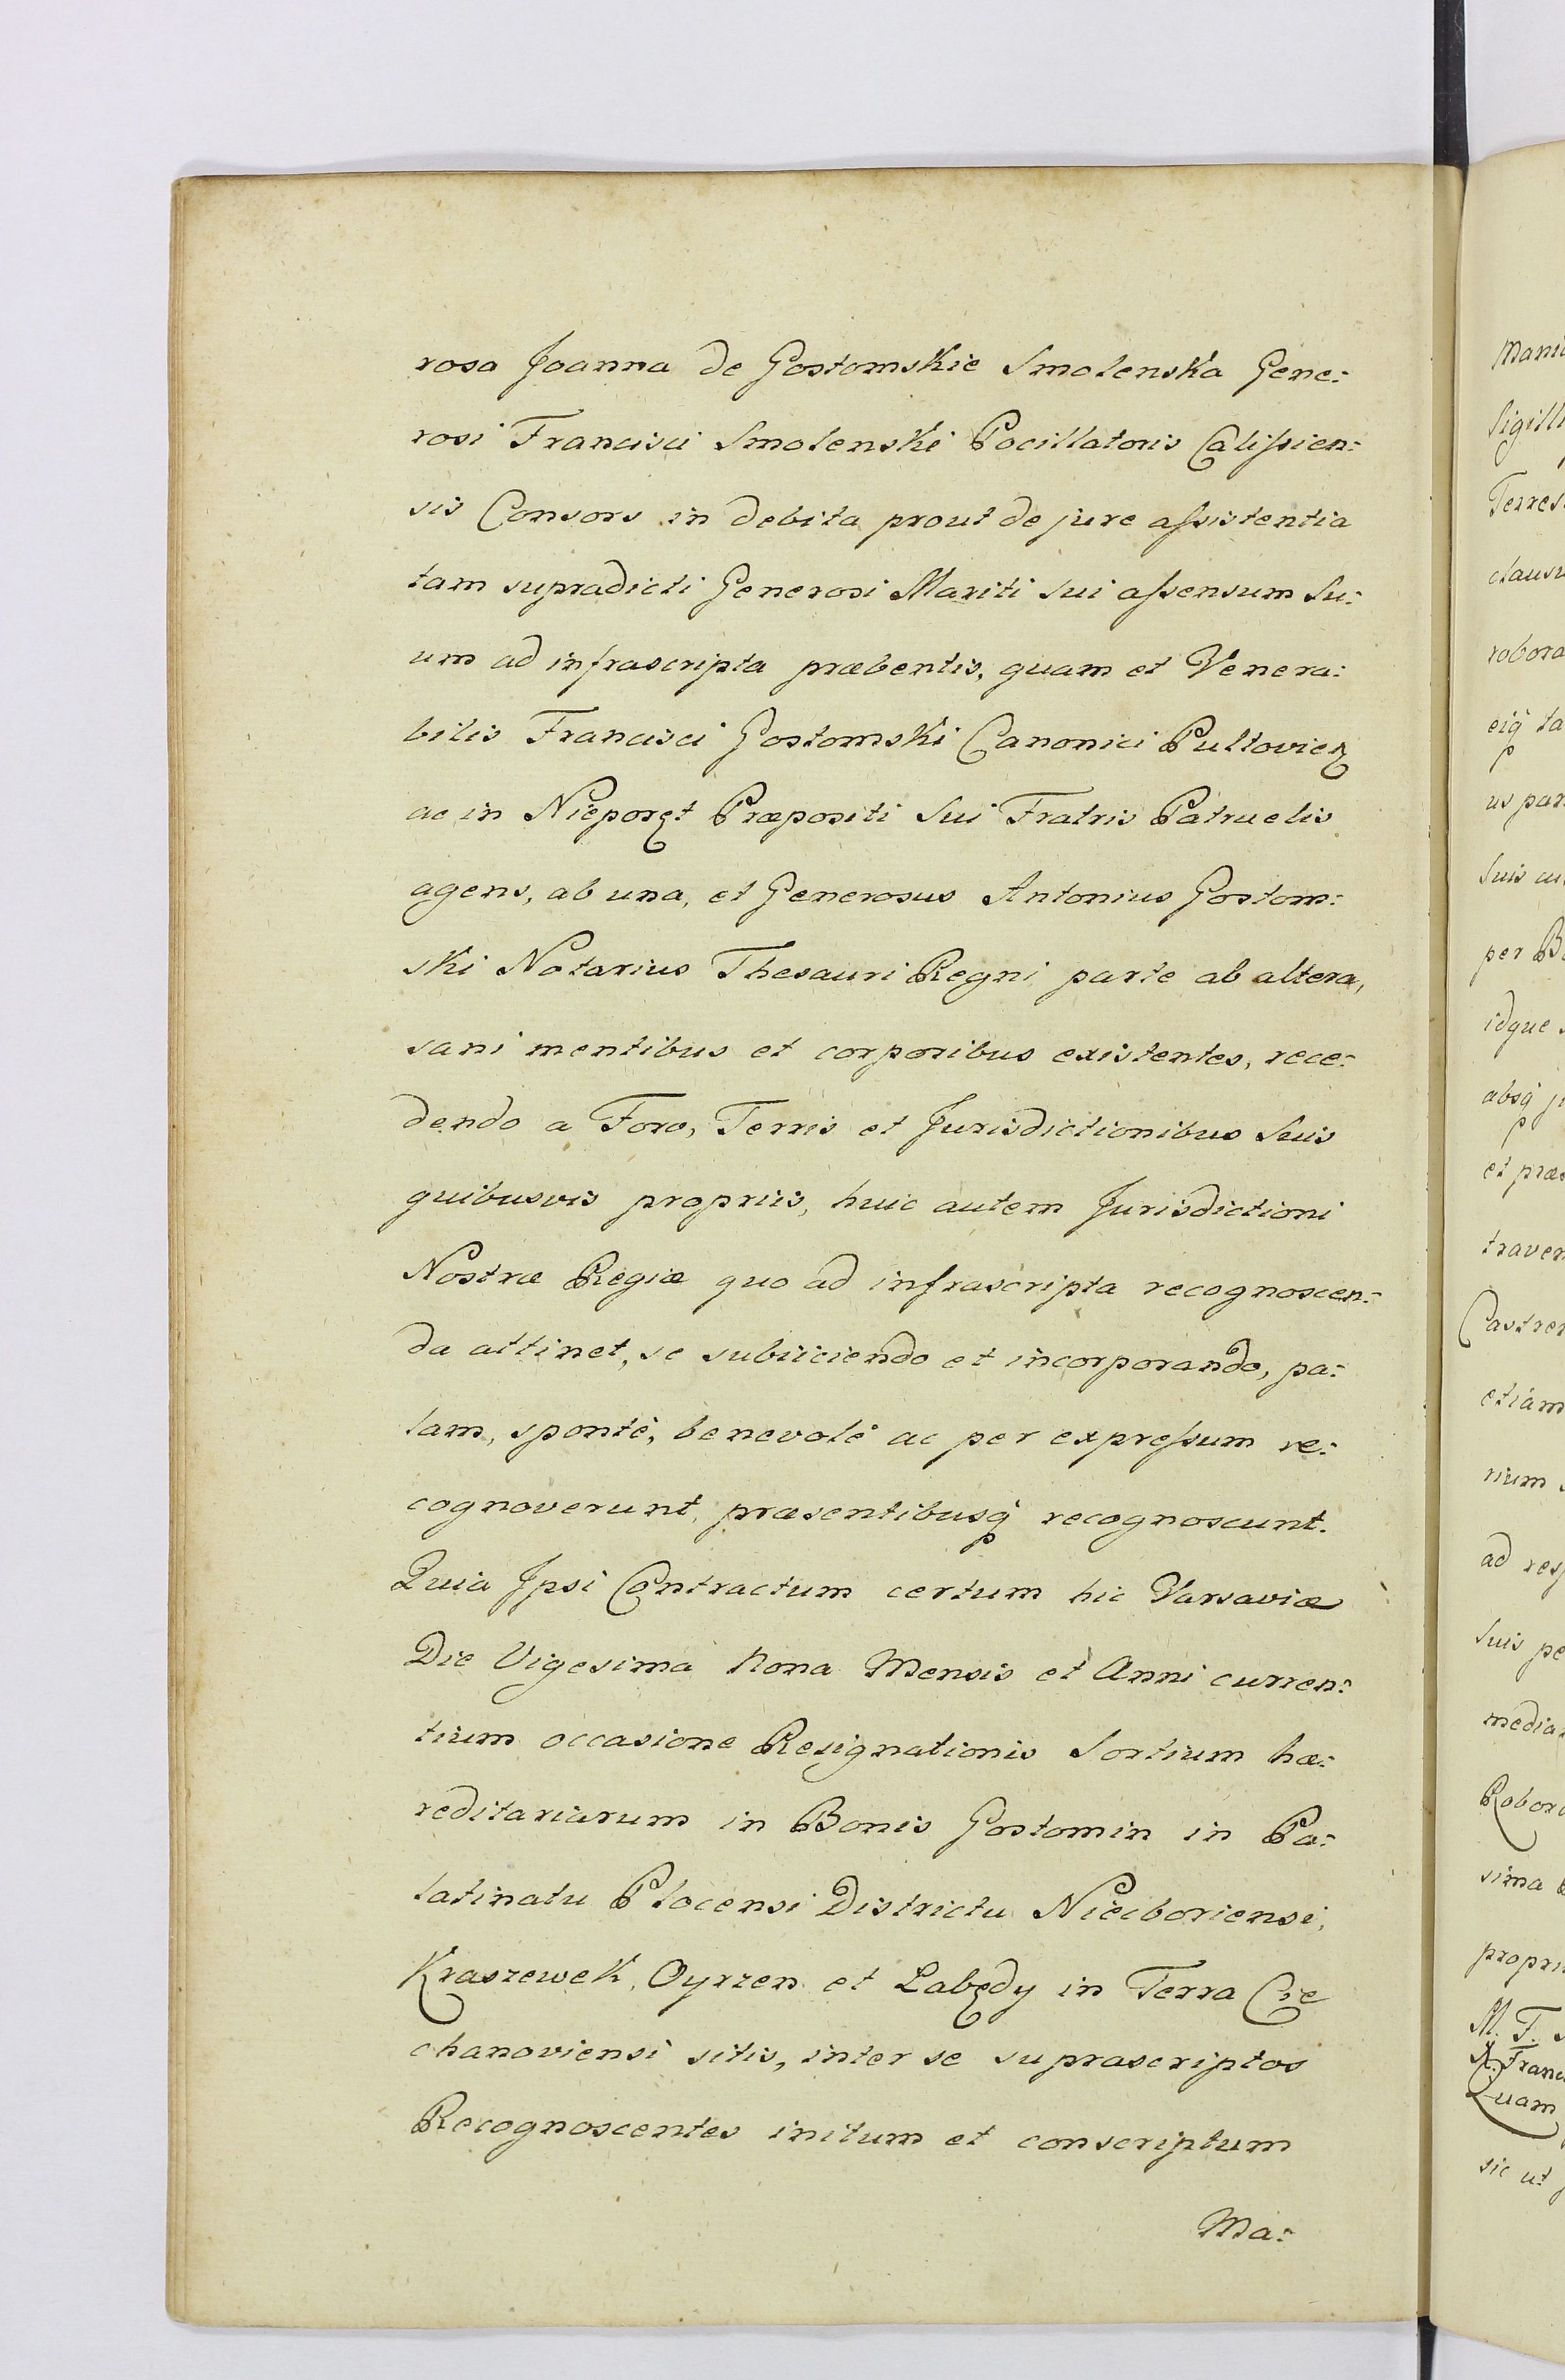 rosa Joanna de Gostomskie Smolenska Gene:
rosi Francisci Smolenski Pocillatoris Calißien:
sis Consors in debita prout de jure aßistentia
tam supradicti Generosi Mariti sui aßensum Su:
um ad infrascripta præbentis, quam et Venera:
bilis Francisci Gostomski Canonici Pultovien
ac in Nieporęt Præpositi Sui Fratris Patruelis
agens, ab una, et Generosus Antonius Gostom:
ski Notarius Thesauri Regni parte ab altera,
sani mentibus et corporibus existentes, rece:
dendo a Foro, Terris et Jurisdictionibus Suis
quibusvis propriis, huic autem Jurisdictioni
Nostræ Regiæ quo ad infrascripta recognoscen:
da attinet, se subiiciendo et incorporando, pa:
lam, sponte, benevole ac per expreßum re:
cognoverunt, præsentibusq recognoscunt.
Quia Ipsi Contractum certum hic Varsaviæ
Die Vigesima Nona Mensis et Anni curren:
tium occasione Resignationis Sortium hæ:
reditariarum in Bonis Gostomin in Pa:
latinatu Plocensi Districtu Niedboriensi,
Kraszewek, Oyrzen et Labędy in Terra Cie
chanoviensi sitis, inter se suprascriptos
Recognoscentes initum et conscriptum
Ma:
Sigilli
Terres
robora
us par
Suis
per
idque
absq
et præ
etiam
ad
Suis pe
media
Robor
sima
propri
M. F.
Quam
sic ut